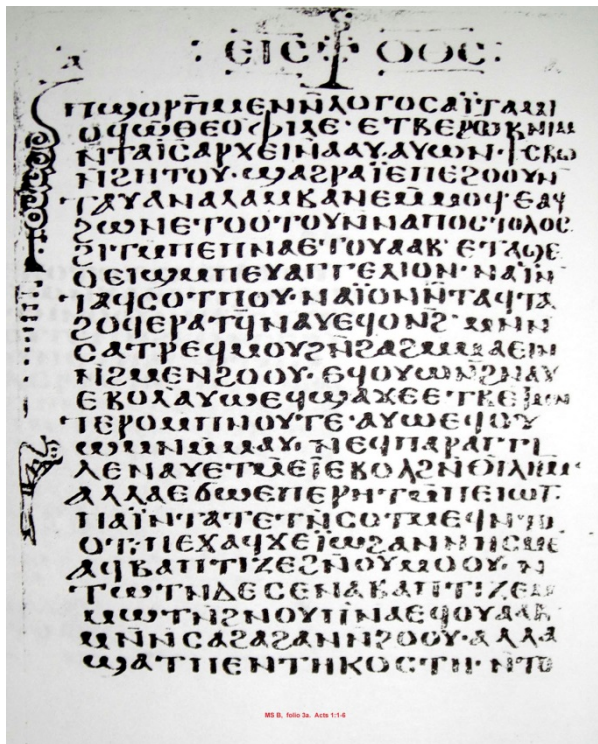 ⲁ
: ⲉⲓⲥ ⲑⲟⲥ:
ⲡϣⲟⲣⲡ̄ⲙⲉⲛⲛ̄ⲗⲟⲅⲟⲥⲁⲓ̈ⲧⲁⲙⲓ
ⲟϥⲱⲑⲉⲟⲫⲓⲗⲉ· ⲉⲧⲃⲉϩⲱⲃⲛⲓⲙ
ⲛ̄ⲧⲁⲓ̄ⲥ̄ⲁⲣⲭⲉⲓⲛⲁⲁⲩ·ⲁⲩⲱⲛ·ϯⲥⲃⲱ
ⲛ̄ϩⲏⲧⲟⲩ·ϣⲁϩⲣⲁⲓ̈ⲉⲡⲉϩⲟⲟⲩⲛ
ⲧⲁⲩⲁⲛⲁⲗⲁⲙⲃⲁⲛⲉⲙⲙⲟϥ·ⲉⲁϥ
ϩⲱⲛⲉⲧⲟⲟⲧⲟⲩⲛⲛⲁⲡⲟⲥⲧⲟⲗⲟⲥ
ϩⲓⲧⲙ̄ⲡⲉⲡⲛⲁⲉⲧⲟⲩⲁⲁⲃ· ⲉⲧⲁϣⲉ
ⲟⲉⲓϣⲙⲡⲉⲩⲁⲅⲅⲉⲗⲓⲟⲛ·ⲛⲁⲓ̈ⲛ̄
ⲧⲁϥⲥⲟⲧⲡⲟⲩ·ⲛⲁⲓ̈ⲟⲛⲛ̄ⲧⲁϥⲧⲁ
ϩⲟϥⲉⲣⲁⲧϥ̄ⲛⲁⲩⲉϥⲟⲛϩ̄·ⲙⲛⲛ
ⲥⲁⲧⲣⲉϥⲙⲟⲩϩⲛ̄ϩⲁϩⲙⲙⲁⲉⲓⲛ
ⲛ̄ϩⲙⲉⲛϩⲟⲟⲩ·ⲉϥⲟⲩⲱⲛϩ̄ⲛⲁⲩ
ⲉⲃⲟⲗⲁⲩⲱⲉϥϣⲁϫⲉⲉⲧⲃⲉⲧⲙⲛ
ⲧⲉⲣⲟⲙⲡⲛⲟⲩⲧⲉ·ⲁⲩⲱⲉϥⲟⲩ
ⲱⲙⲛⲙ̄ⲙⲁⲩ·ⲛⲉϥⲡⲁⲣⲁⲅⲅⲓ
ⲗⲉⲛⲁⲩⲉⲧⲙ̄ⲉⲓ̈ⲉⲃⲟⲗϩⲛ̄ⲑⲓⲗⲏⲙ·
ⲁⲗⲗⲁⲉϭⲱⲉⲡⲉⲣⲏⲧⲙ̄ⲡⲉⲓⲱⲧ
ⲡⲁⲓ̈ⲛⲧⲁⲧⲉⲧⲛ̄ⲥⲟⲧⲙⲉϥⲛⲧⲟ
ⲟⲧ·ⲡⲉϫⲁϥϫⲉⲓ̈ⲱϩⲁⲛⲛⲏⲥⲙⲉ
ⲁϥⲃⲁⲡⲧⲓⲍⲉϩⲛⲟⲩⲙⲟⲟⲩ·ⲛ
ⲧⲱⲧⲛ̄ⲇⲉⲥⲉⲛⲁⲃⲁⲡⲧⲓⲍⲉⲙ
ⲙⲱⲧⲛ̄ϩⲛⲟⲩⲡⲛ̄ⲁⲉϥⲟⲩⲁⲁⲃ
ⲙⲛ̄ⲛⲥⲁϩⲁϩⲁⲛⲛϩⲟⲟⲩ·ⲁⲗⲗⲁ
ϣⲁⲧⲡⲉⲛⲧⲏⲕⲟⲥⲧⲏ·ⲛⲧⲟ
MS B, folio 3a. Acts 1:1-6